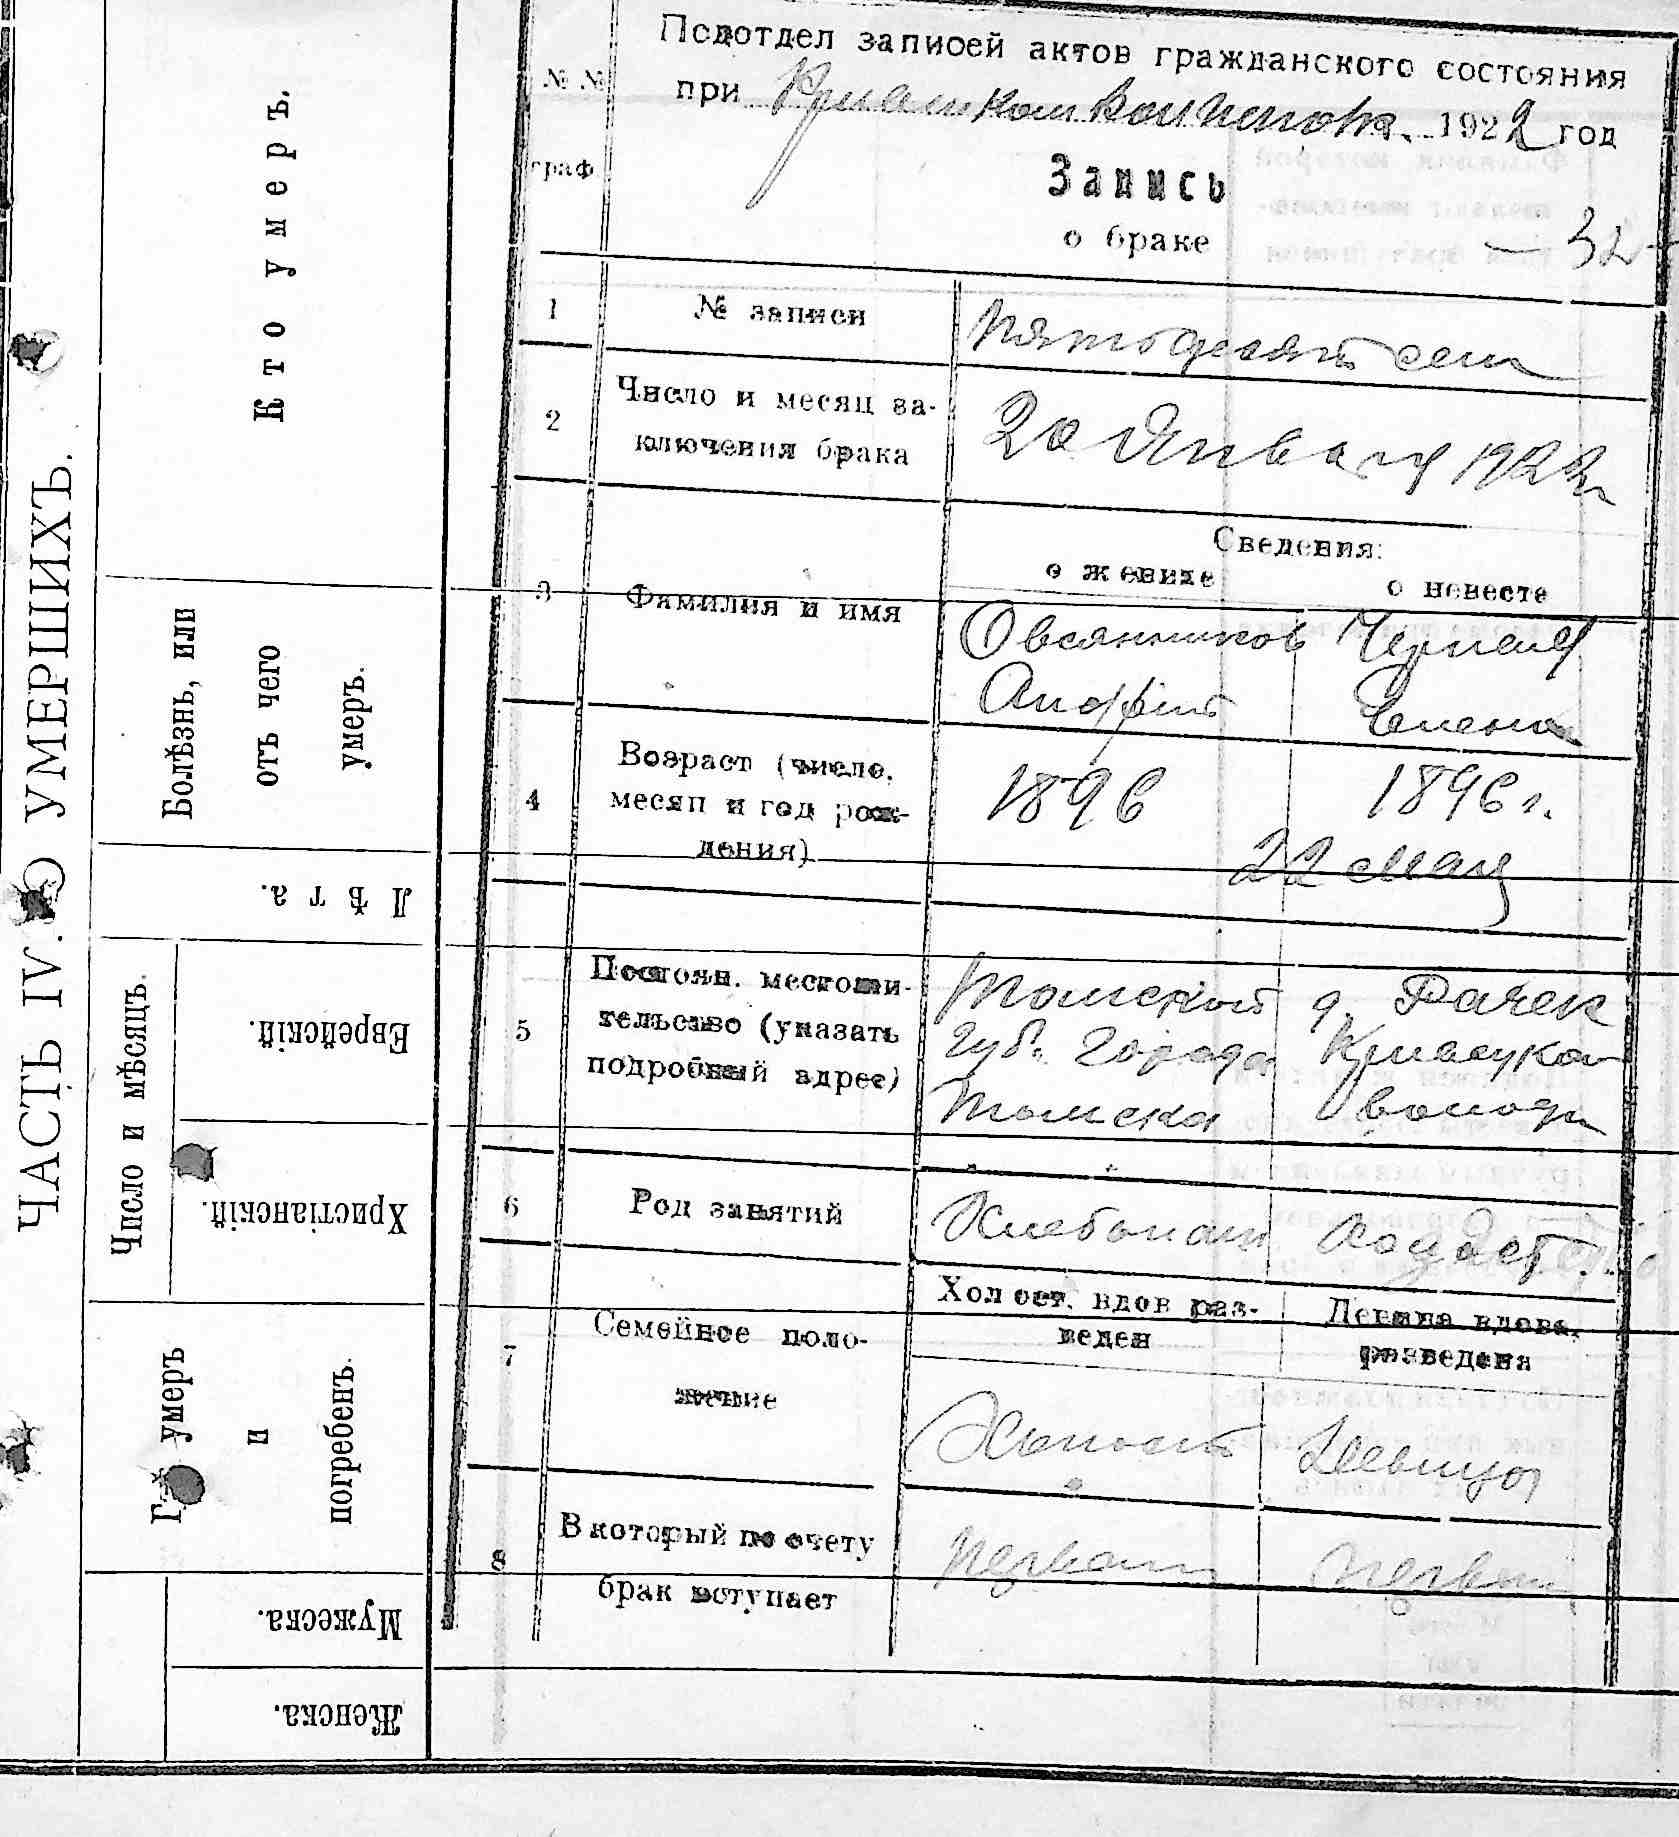 ЧАСТЬ IV. О УМЕРШИХЪ.
Кто умеръ.
Болѣзнь, или
отъ чего
умеръ.
Лѣта.
Число и мѣсяцъ.
Еврейскій.
Христіанскій.
умеръ
и
погребенъ.
Мужеска.
Женска.
Подотдел записей актов гражданского состояния
№ №
граф
при 1922 год
Запись
о браке
— 32 —
1 № записи
Пятьдесят сем
2 Число и месяц за-
ключения брака
20 Января 1922 г
Сведения:
о женихе о невесте
3 Фамилия и имя
Овсянников
Андрей
Елена
4 Возраст (число,
месяц и год рож-
дения)
1896 1896 г.
22 мая
5 Постоян. местожи-
тельство (указать
подробный адрес)
Томской д.
губ. города
Томска волости
6 Род занятий
Хлебопаш
7 Семейное поло-
жение
Холост. вдов раз-
веден
Девица вдова,
разведена
Холост Девица
8 В который по счету
брак вступает
первый первый